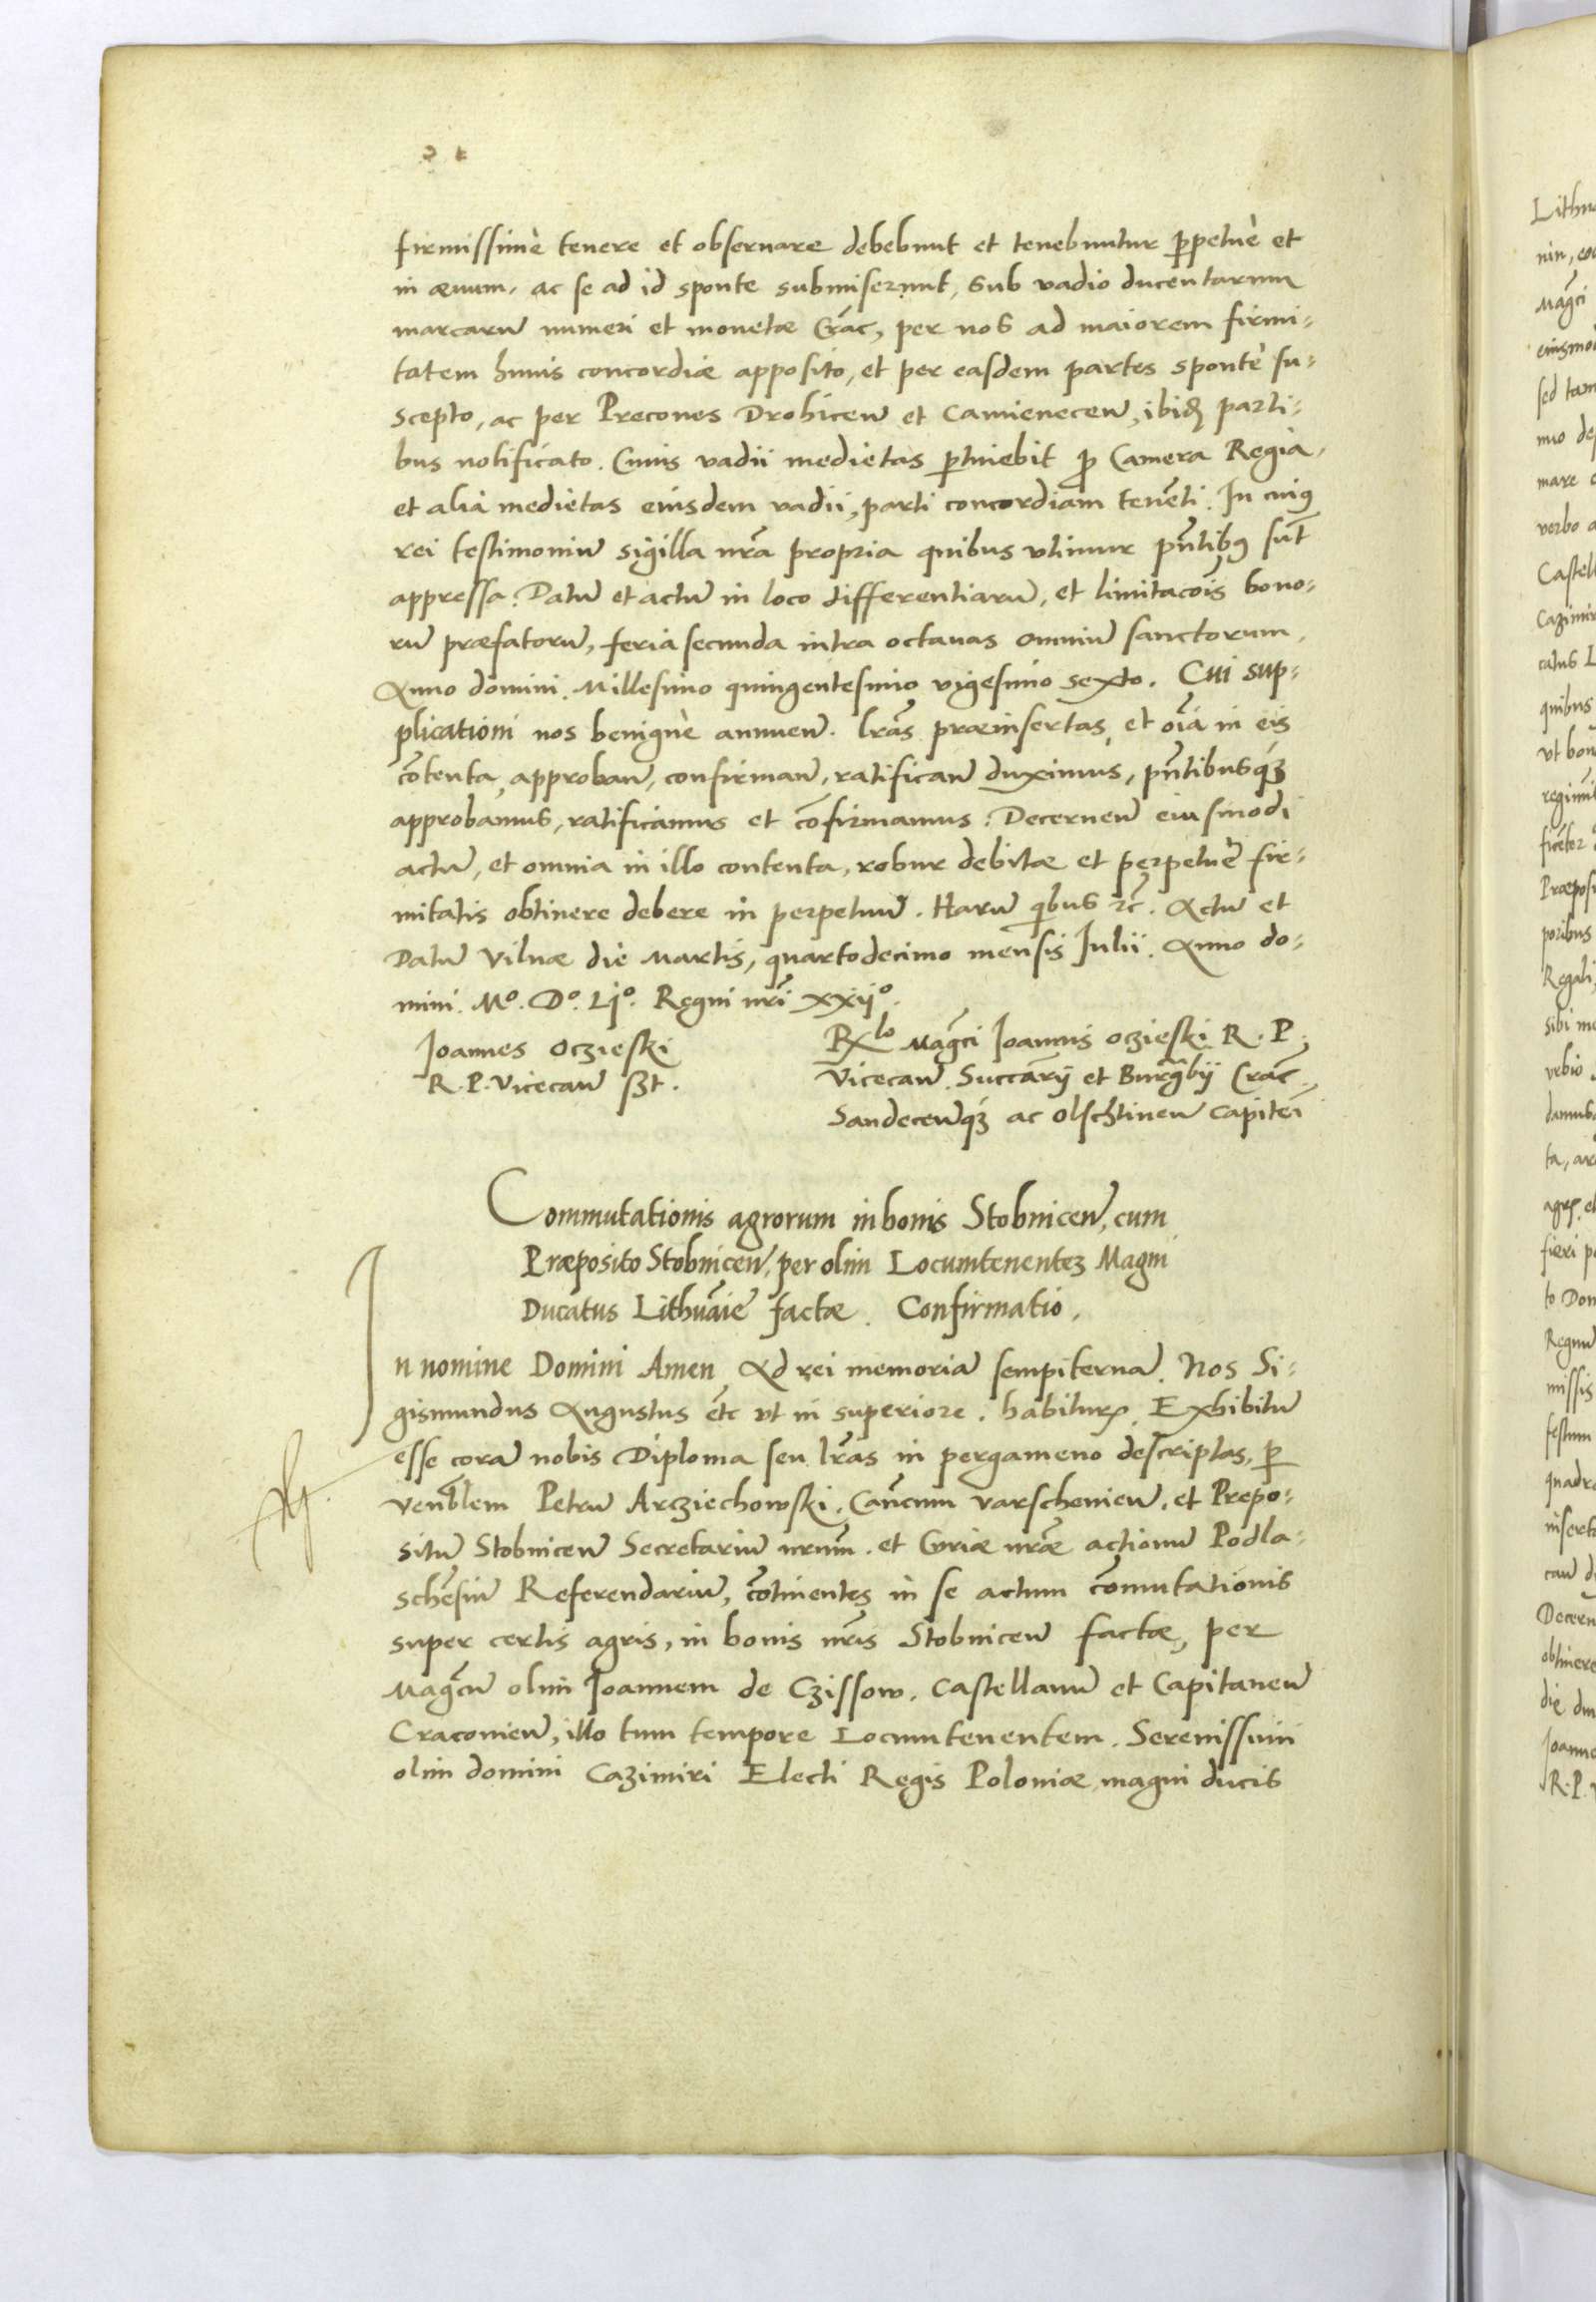 firmissimè tenere et obseruare debebunt et tenebuntur ꝑpetuè et
in æuum, ac se ad id sponte submiserunt, sub vadio ducentarum
marcarū numeri et monetæ Crac̄, per nos ad maiorem firmi-
tatem huius concordiæ apposito, et per easdem partes sponte su-
scepto, ac per Precones Drohiceñ et Camieneceñ, ibidꝫ parti-
bus notificato. Cuius vadii medietas ꝑtinebit ꝓ Camera Regia,
et alia medietas eiusdem vadii, parti concordiam tenēti. In cuiꝰ
rei testimoniū sigilla nrā propria quibus vtimur pñtibꝰ sūt
appressa. Datū et actū in loco differentiarū, et limitacōis bono-
rū præfatorū, feria secunda intra octauas omniū sanctorum,
Anno domini Millesimo quingentesimo vigesimo sexto. Cui sup-
plicationi nos benigne annueñ. lrās præinsertas, et oīa in eis
cōtenta, approbañ, confirmañ, ratificañ duximus, pñtibusqꝫ
approbamus, ratificamus et cōfirmamus. Decerneñ eiusmodi
actū, et omnia in illo contenta, robur debitæ et perpetuè fir-
mitatis obtinere debere in perpetuū. Harū qibus ꝛc̄. Actū et
Datū Vilnæ die Martis, quartodecimo mensis Julii. Anno do-
mini. Mº. Dº. Lijº. Regni nrī xxijº.
Joannes Oczieski
R. P. Vicecañ sst.
Relō Mag̃ci Joannis Oczieski R. P.
Vicecañ. Succarīj et Burg̃bij Crac̄
Sandeceñqꝫ ac Olschtineñ Capitei
Commutationis agrorum in bonis Stobniceñ, cum
Præposito Stobniceñ, per olim Locumtenentez Magni
Ducatus Lithuāie factæ. Confirmatio.
In nomine Domini Amen Ad rei memoriā sempiternā. Nos Si-
gismundus Augustus etc̄ vt in superiore. habiturꝫ. Exhibitū
esse corā nobis Diploma seu lrās in pergameno descriptas, ꝑ
venblem Petrū Arcziechowski, Cancum varschenieñ, et Prepo-
situ Stobniceñ Secretariū nrum̄. et Curiæ nrǣ actionū Podla-
schēsiū Referendariū, cōtinentes in se actum cōmutationis
super certis agris, in bonis nrīs Stobniceñ factæ, per
Mag̃cū olim Joannem de Czissow, Castellanū et Capitaneū
Cracouieñ, illo tum tempore Locumtenentem. Serenissimi
olim domini Cazimiri Electi Regis Poloniæ, magni ducis